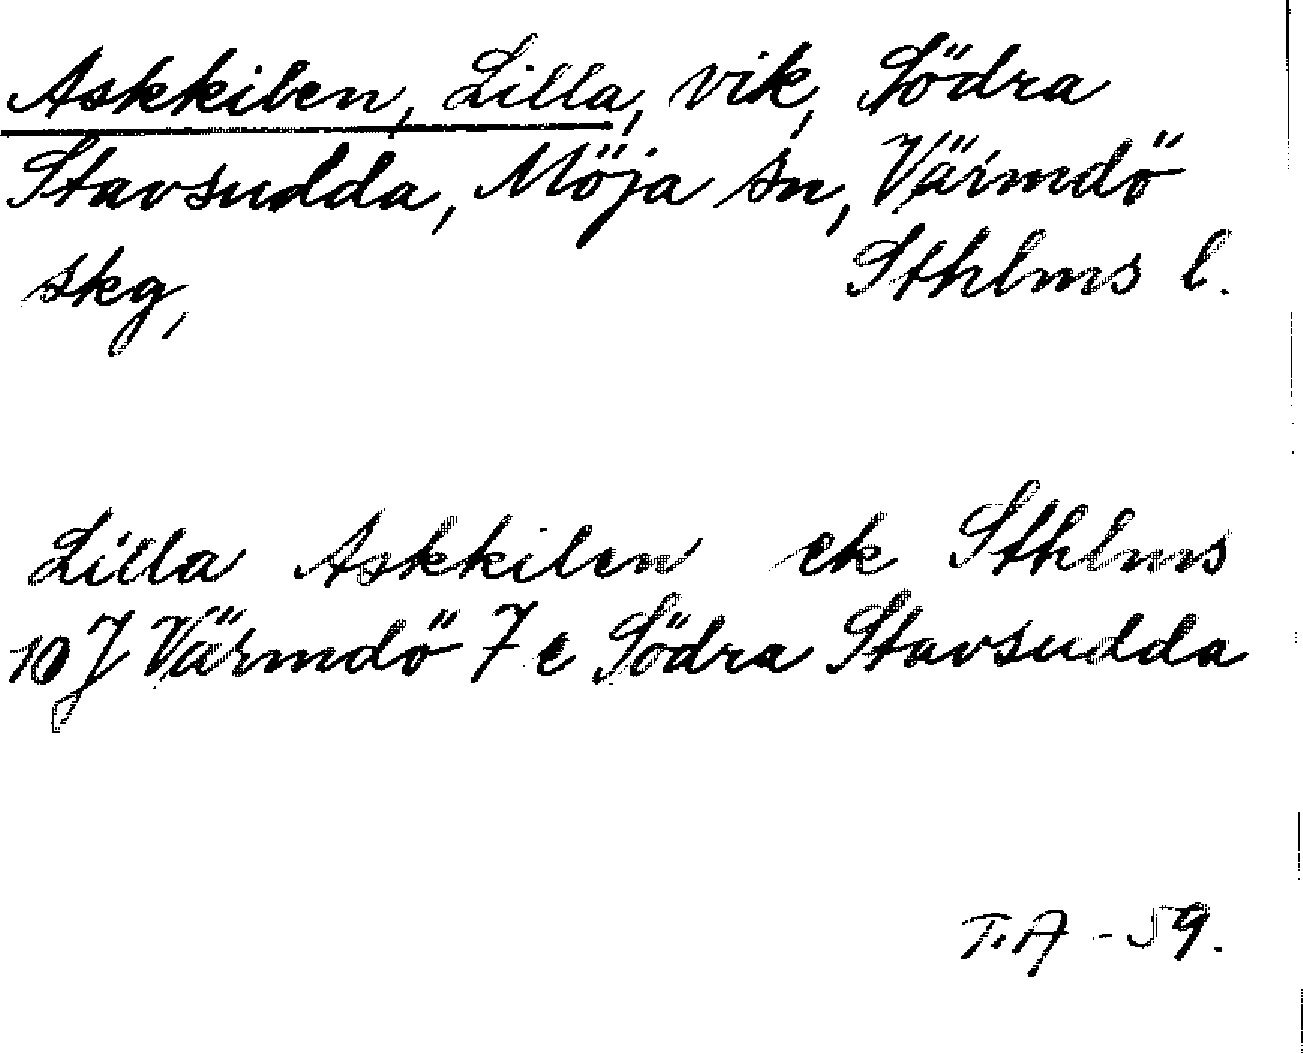 Askkilen, Lilla, vik, Södra
Stavsudda, Möja sn, Värmdö
skg, Sthlms l.
Lilla Askkilen ek Sthlms
10 J Värmdö 7 e Södra Stavsudda
T.A - 59.